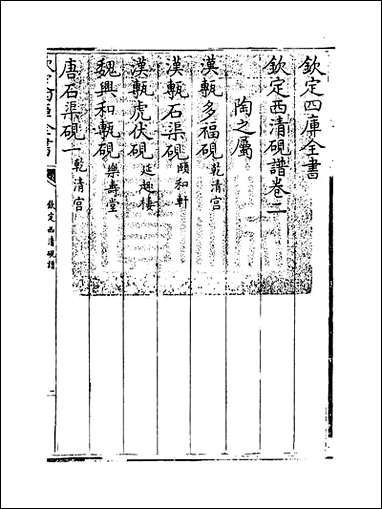 欽定四庫全書
欽定西清硯譜卷二
陶之屬
漢甎多福硯 乾清宫
漢甎石渠硯 頤和軒
漢甎虎伏硯 延趣樓
魏興和甎硯 樂壽堂
唐石渠硯一 乾清宫
欽定西清硯譜